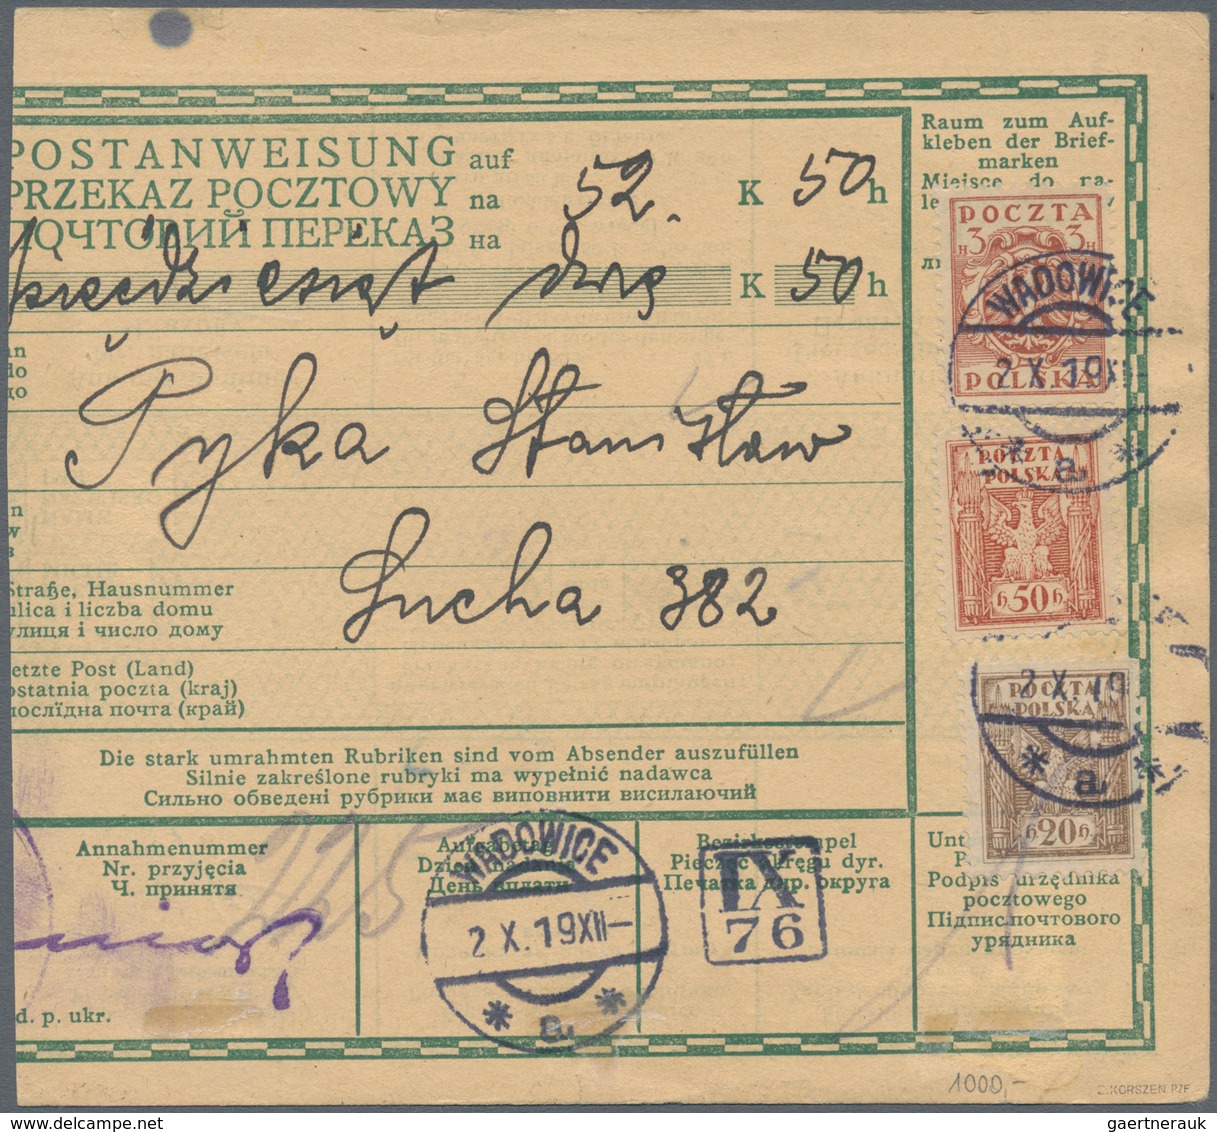 POSTANWEISUNG auf 52. K 50 h
PRZEKAZ POCZTOWY na
ПОЧТОВИЙ ПЕРЕКАЗ на
pięćdziesiąt dwie K 50 h
an
do
го
Pyka Stanisław
Sucha 382
Straße, Hausnummer
ulica i liczba domu
улиця і число дому
letzte Post (Land)
ostatnia poczta (kraj)
послїдна почта (край)
Die stark umrahmten Rubriken sind vom Absender auszufüllen
Silnie zakreślone rubryki ma wypełnić nadawca
Сильно обведені рубрики має виповнити висилаючий
Annahmenummer
Nr. przyjęcia
Ч. принятя
225
d. p. ukr.
Aufgabetag
Dzień nadania
День вплати
WADOWICE
2 X. 19 XII–
* a. *
Bezirksstempel
Pieczęć okręgu dyr.
Печатка дир. округа
IX
76
Raum zum Auf-
kleben der Brief-
marken
Miejsce do na-
POCZTA
3 H 3 H
POLSKA
WADOWICE
2 X. 19 XII–
* a. *
POCZTA
POLSKA
h 50 h
2 X. 19
POCZTA
POLSKA
* a. *
h 20 h
Podpis urzędnika
pocztowego
Підпис почтового
урядника
1000,-
E.KORSZEŃ PZF
gaertnerauk @ delcampe.net